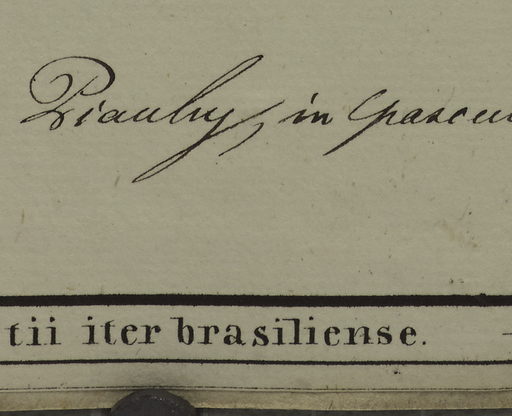 Piauhy, in pascu
tii iter brasiliense.